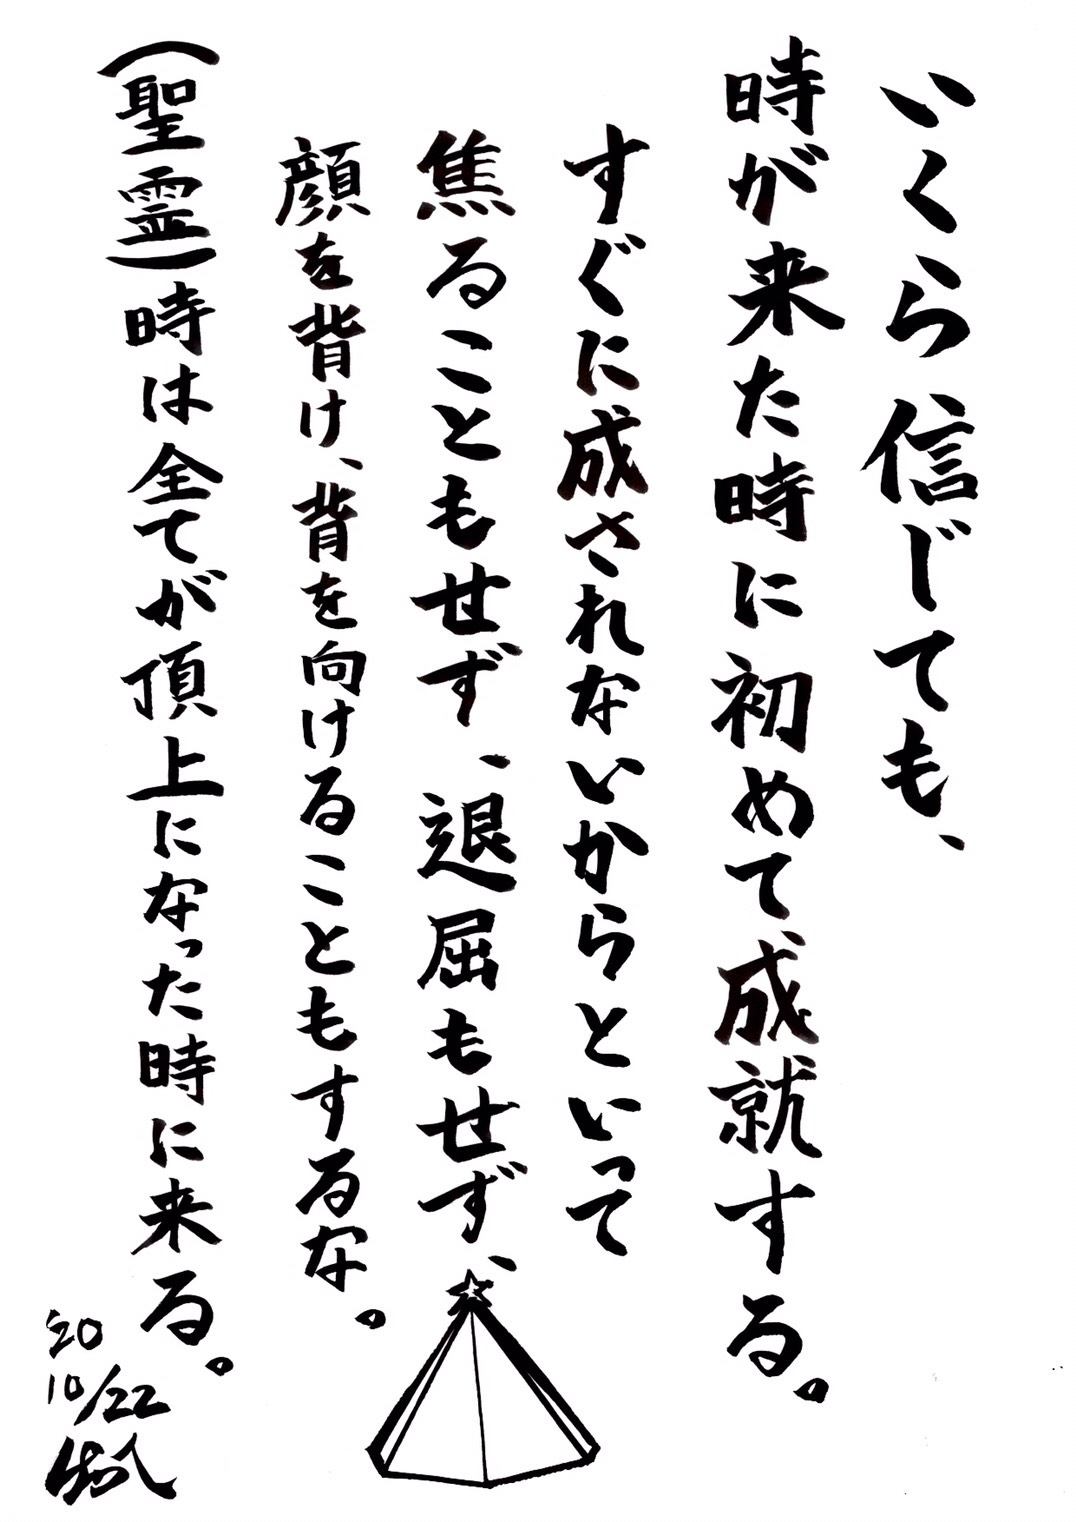 いくら信じても、
時が来た時に初めて成就する。
すぐに成されないからといって
焦ることもせず、退屈もせず、
顔を背け、背を向けることもするな。
(聖霊)時は全てが頂上になった時に来る。
'20
10/22